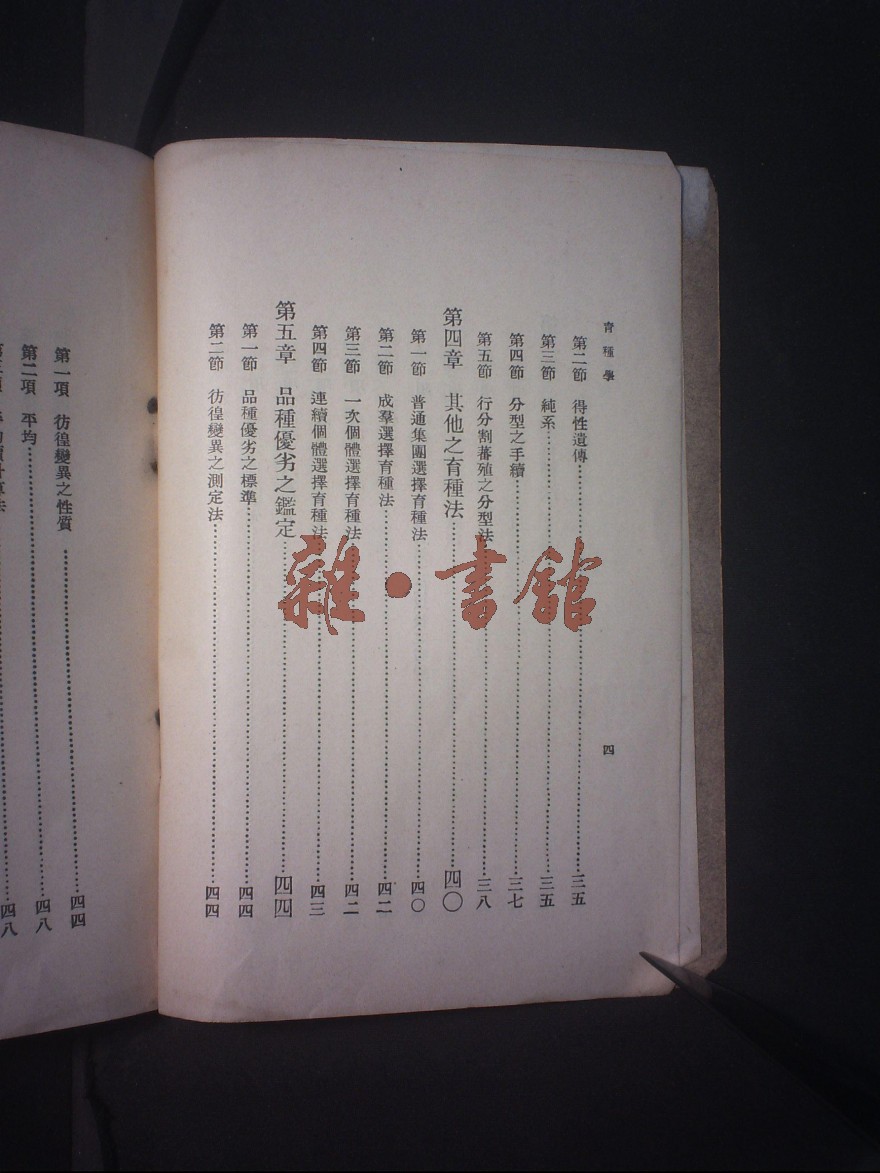 育種學
四
第二節　得性遺傳……三五
第三節　純系……三五
第四節　分型之手續……三七
第五節　行分割蕃殖之分型法……三八
第四章　其他之育種法……四〇
第一節　普通集團選擇育種法……四〇
第二節　成羣選擇育種法……四二
第三節　一次個體選擇育種法……四二
第四節　連續個體選擇育種法……四三
第五章　品種優劣之鑑定……四四
第一節　品種優劣之標準……四四
第二節　彷徨變異之測定法……四四
第一項　彷徨變異之性質……四四
第二項　平均……四八
四八
雜·書館